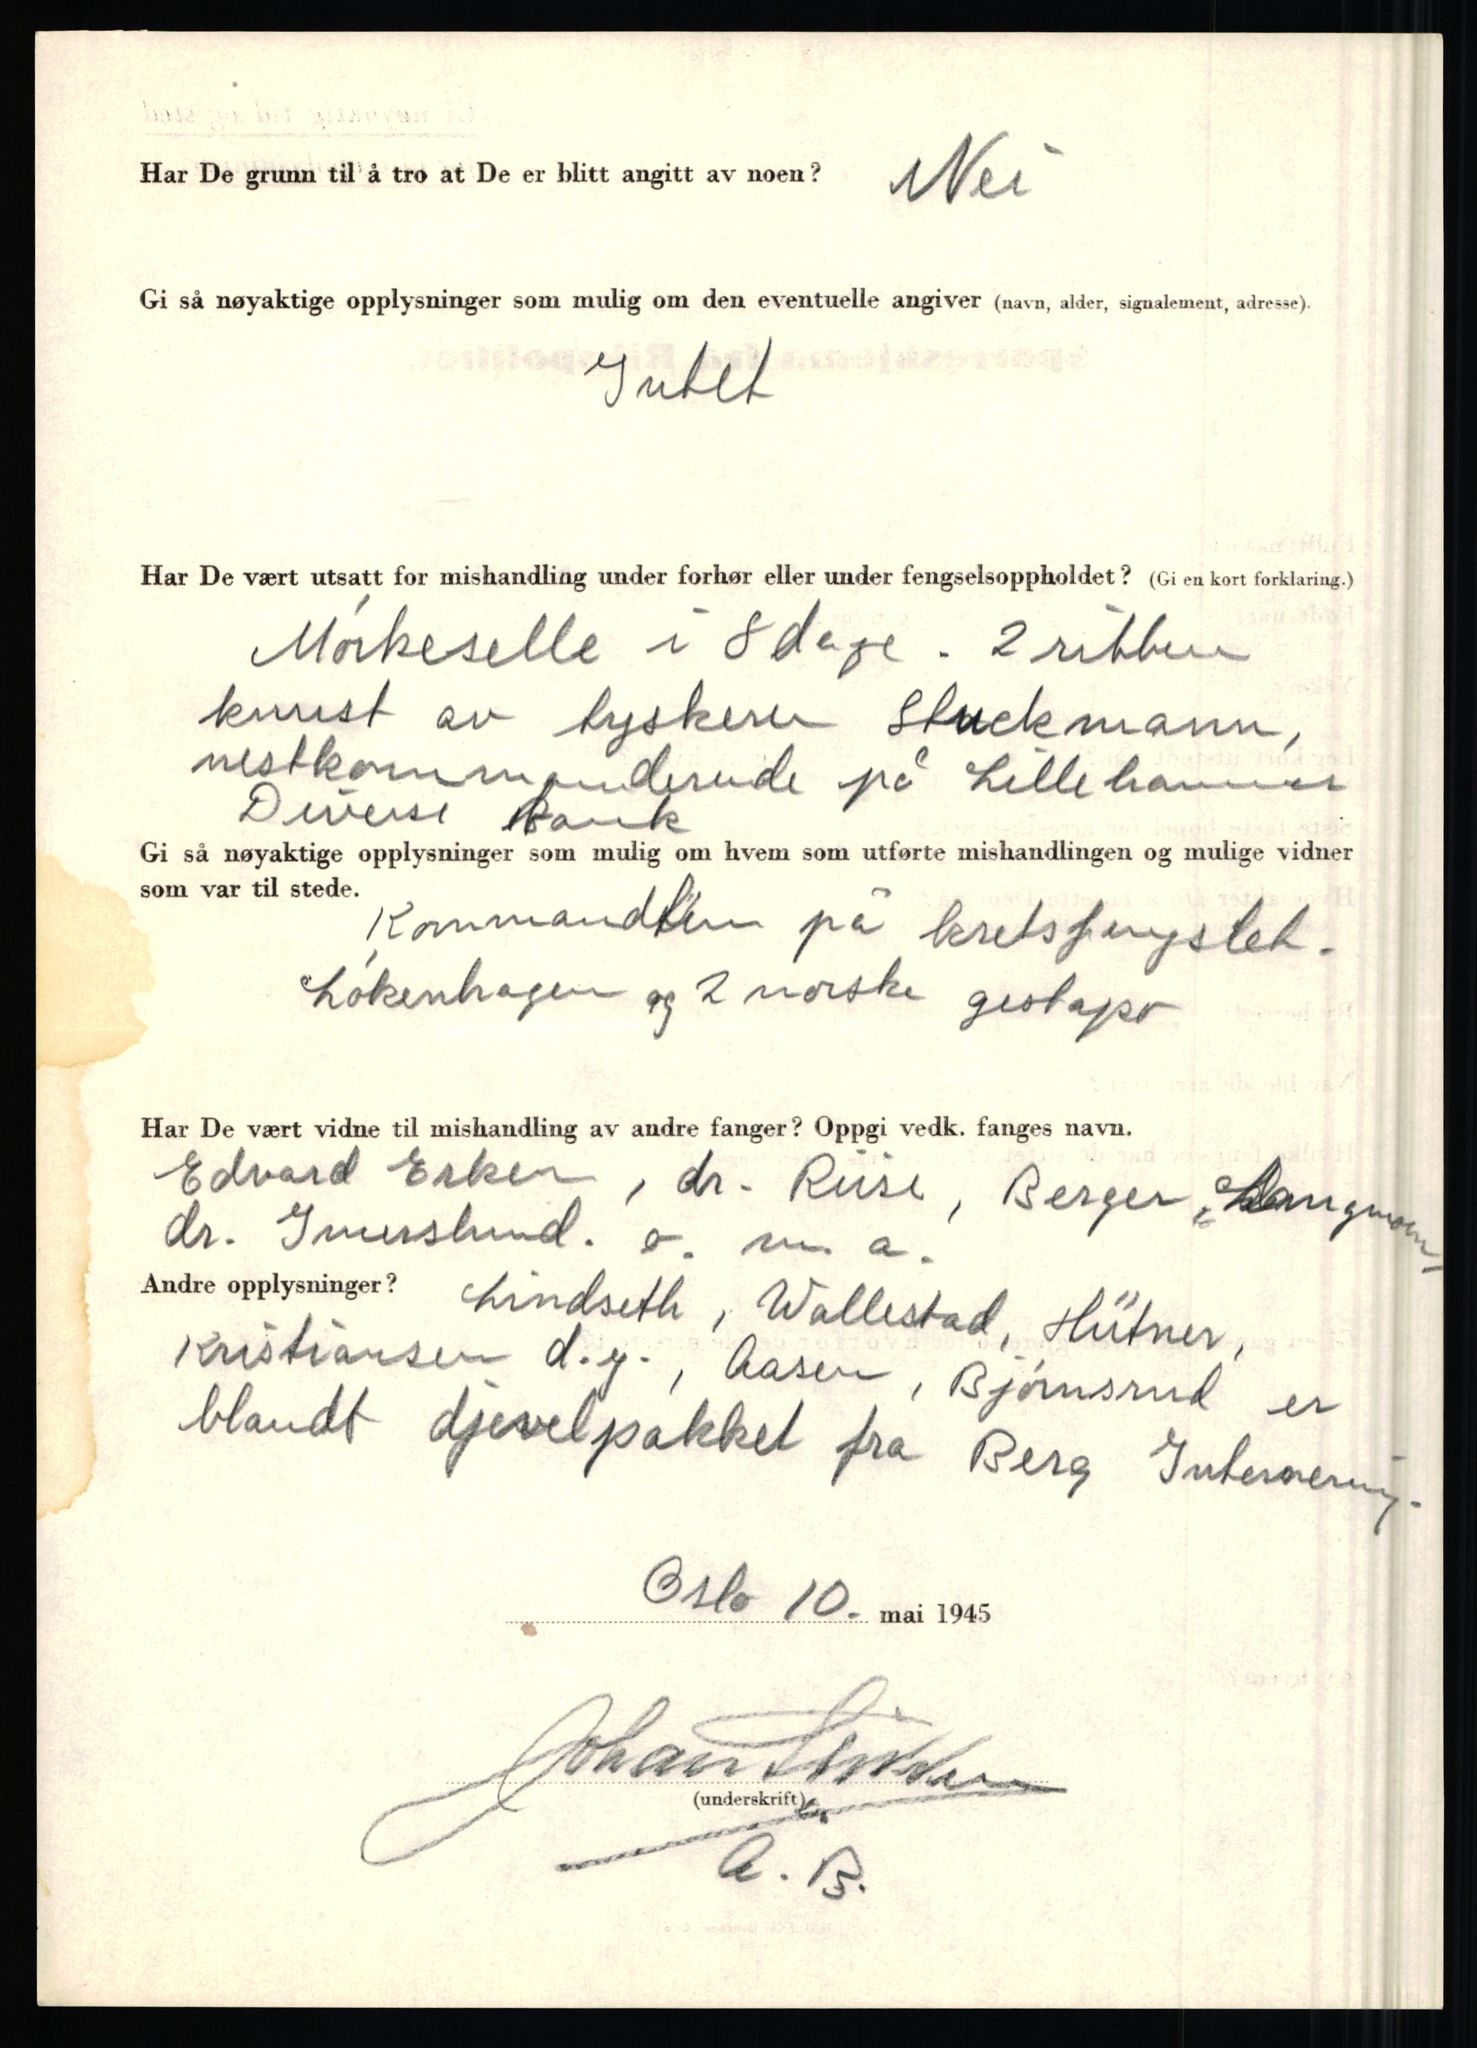 Har De grunn til å tro at De er blitt angitt av noen? Nei
Gi så nøyaktige opplysninger som mulig om den eventuelle angiver (navn, alder, signalement, adresse).
Intet
Har De vært utsatt for mishandling under forhør eller under fengselsoppholdet? (Gi en kort forklaring.)
Mórkeselle i 8 dage. 2 ribben
knust av tyskeren Stuckmann,
nestkommanderende på Lillehammer
Diverse Bank
Gi så nøyaktige opplysninger som mulig om hvem som utførte mishandlingen og mulige vidner
som var til stede.
Kommandten på kretsfengslet.
Lókenhagen og 2 norske gestapo
Har De vært vidne til mishandling av andre fanger? Oppgi vedk. fanges navn.
Edvard Erken, dr. Riise, Berger, Langmoen,
dr. Imerslund. o. m. a.
Andre opplysninger? Lindseth, Wallestad, Hütner,
Kristiansen d.y., Aasen, Bjórnsrud er
blandt djevelpakket fra Berg Internering.
Oslo 10. mai 1945
Johan
(underskrift)
A. B.